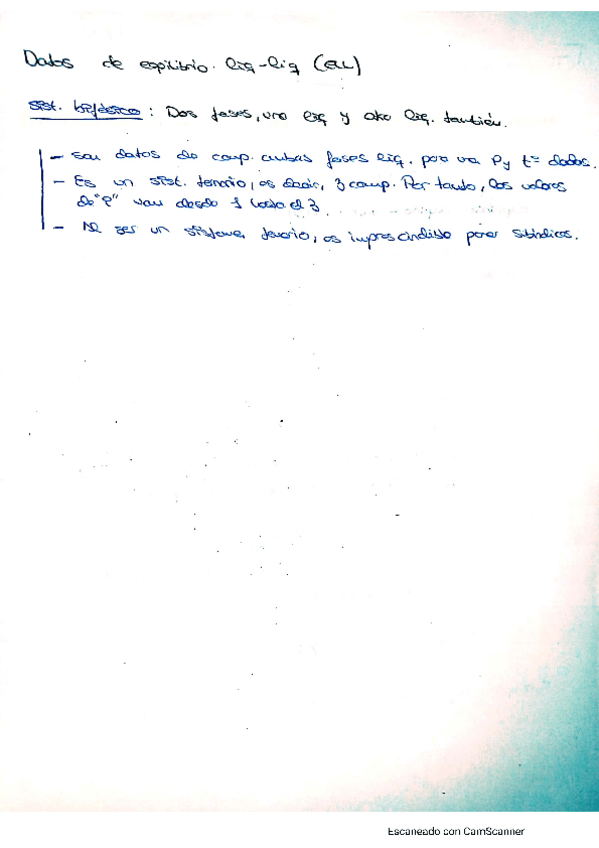 Datos de equilibrio liq-liq (ELL)
Sist. bifásico: Dos fases, una liq y otra liq. también.
- Son datos de comp. ambas fases liq. para una P y tª dados.
- Es un sist. ternario, es decir, 3 comp. Por tanto, los valores
de "i" van desde 1 hasta el 3.
- Al ser un sistema ternario, es imprescindible poner subíndices.
Escaneado con CamScanner